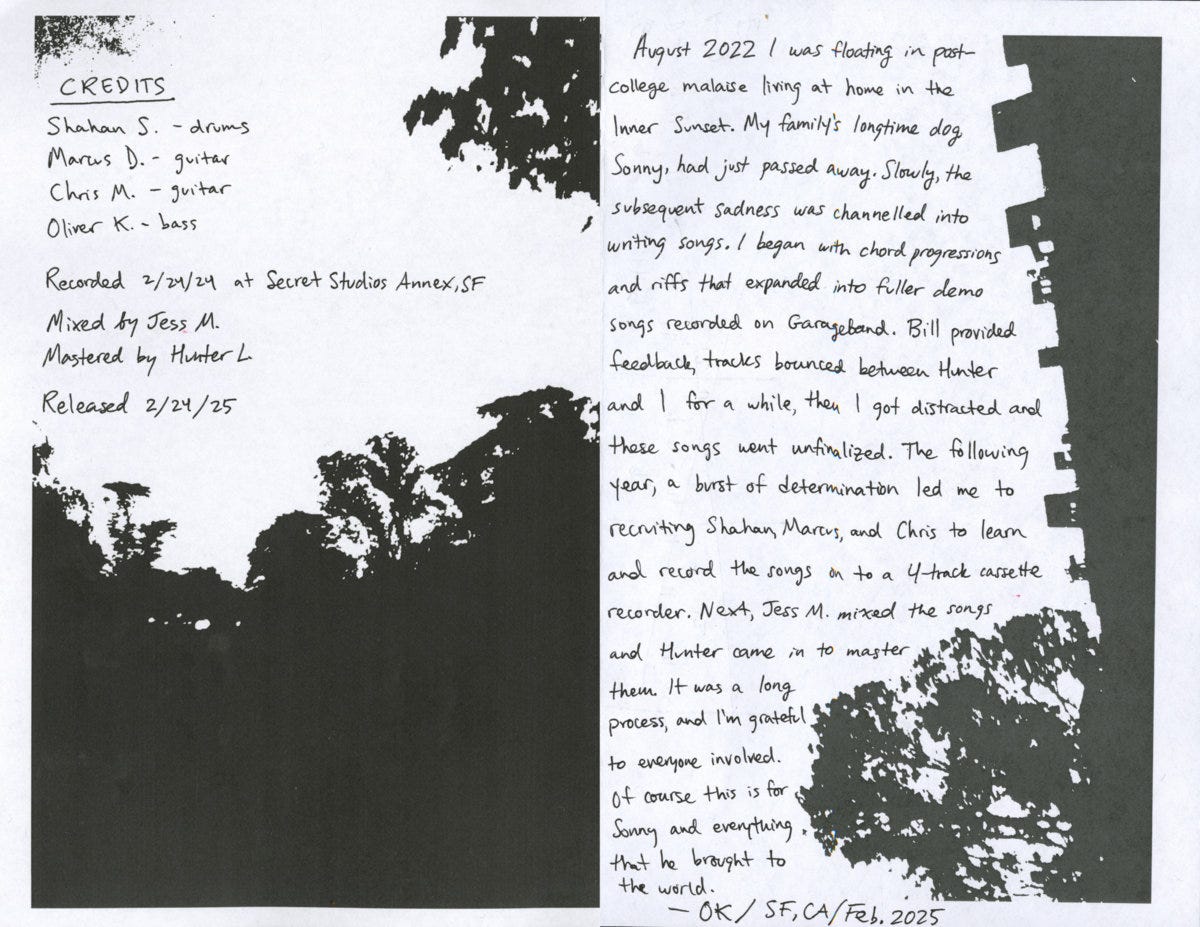 CREDITS
Shahan S. - drums
Marcus D. - guitar
Chris M. - guitar
Oliver K. - bass
Recorded 2/24/24 at Secret Studios Annex, SF
Mixed by Jess M.
Mastered by Hunter L
Released 2/24/25
August 2022 I was floating in post-
college malaise living at home in the
Inner Sunset. My family's longtime dog,
Sonny, had just passed away. Slowly, the
subsequent sadness was channelled into
writing songs. I began with chord progressions
and riffs that expanded into fuller demo
songs recorded on Garageband. Bill provided
feedback, tracks bounced between Hunter
and I for a while, then I got distracted and
these songs went unfinalized. The following
year, a burst of determination led me to
recruiting Shahan, Marcus, and Chris to learn
and record the songs on to a 4-track cassette
recorder. Next, Jess M. mixed the songs
and Hunter came in to master
them. It was a long
process, and I'm grateful
to everyone involved.
Of course this is for
Sonny and everything
that he brought to
the world.
- OK / SF, CA / Feb. 2025